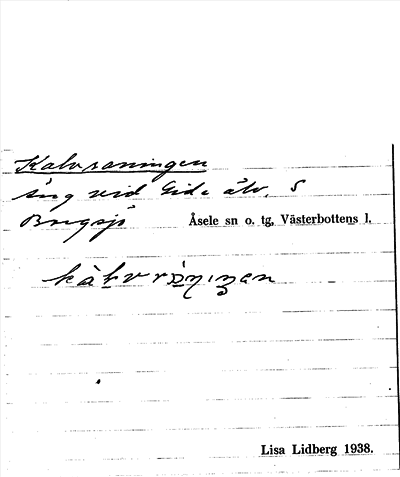 Kalvraningen
äng vid Gide älv, S
Borgsjö Åsele sn o. tg, Västerbottens l.
Lisa Lidberg 1938.